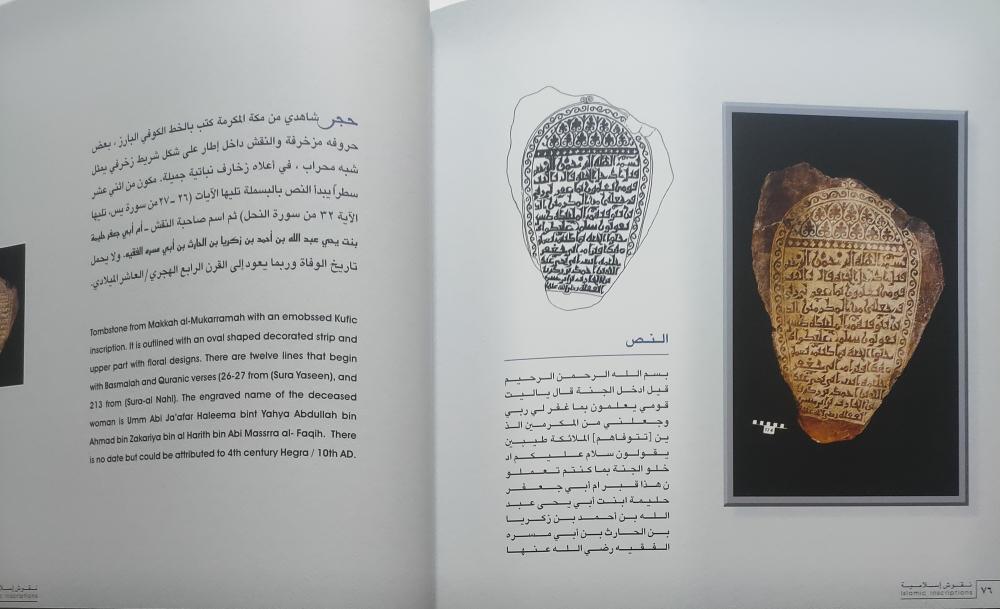 حجر شاهدي من مكة المكرمة كتب بالخط الكوفي البارز ، بعض
حروفه مزخرفة والنقش داخل إطار على شكل شريط زخرفي يمثل
شبه محراب ، في أعلاه زخارف نباتية جميلة. مكون من اثني عشر
سطراً يبدأ النص بالبسملة تليها الآيات (٢٦ -٢٧ من سورة يس، تليها
الآية ٣٢ من سورة النحل) ثم اسم صاحبة النقش - أم أبي جعفر حليمة
بنت يحي عبد الله بن أحمد بن زكريا بن الحارث بن أبي مسره الفقيه. ولا يحمل
تاريخ الوفاة وربما يعود إلى القرن الرابع الهجري/ العاشر الميلادي.
Tombstone from Makkah al-Mukarramah with an emobssed Kufic
inscription. It is outlined with an oval shaped decorated strip and
upper part with floral designs. There are twelve lines that begin
with Basmalah and Quranic verses (26-27 from (Sura Yaseen), and
213 from (Sura-al Nahl). The engraved name of the deceased
woman is Umm Abi Ja'afar Haleema bint Yahya Abdullah bin
Ahmad bin Zakariya bin al Harith bin Abi Massrra al- Faqih. There
is no date but could be attributed to 4th century Hegra / 10th AD.
النص
بسم الله الرحمن الرحيم
قيل ادخل الجنة قال ياليت
قومي يعلمون بما غفر لي ربي
وجعلني من المكرمين الذ
ين [تتوفاهم] الملائكة طيبين
يقولون سلام عليكم اد
خلو الجنة بما كنتم تعملو
ن هذا قبر ام أبي جعفر
حليمة ابنت أبي يحى عبد
الله بن أحمد بن زكريا
بن الحارث بن أبي مسره
الفقيه رضي الله عنها
نقوش إسلامية
Islamic inscriptions
٧٦